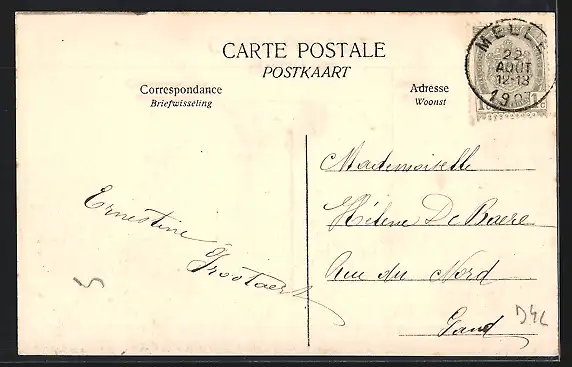 CARTE POSTALE
POSTKAART
Correspondance
Briefwisseling
Adresse
Woonst
MELLE
22
AOUT
12-13
1907
1c 1c
Mademoiselle
Hélène De Baere
Rue du Nord
Gand
Ernestine
Grootaert
D4L